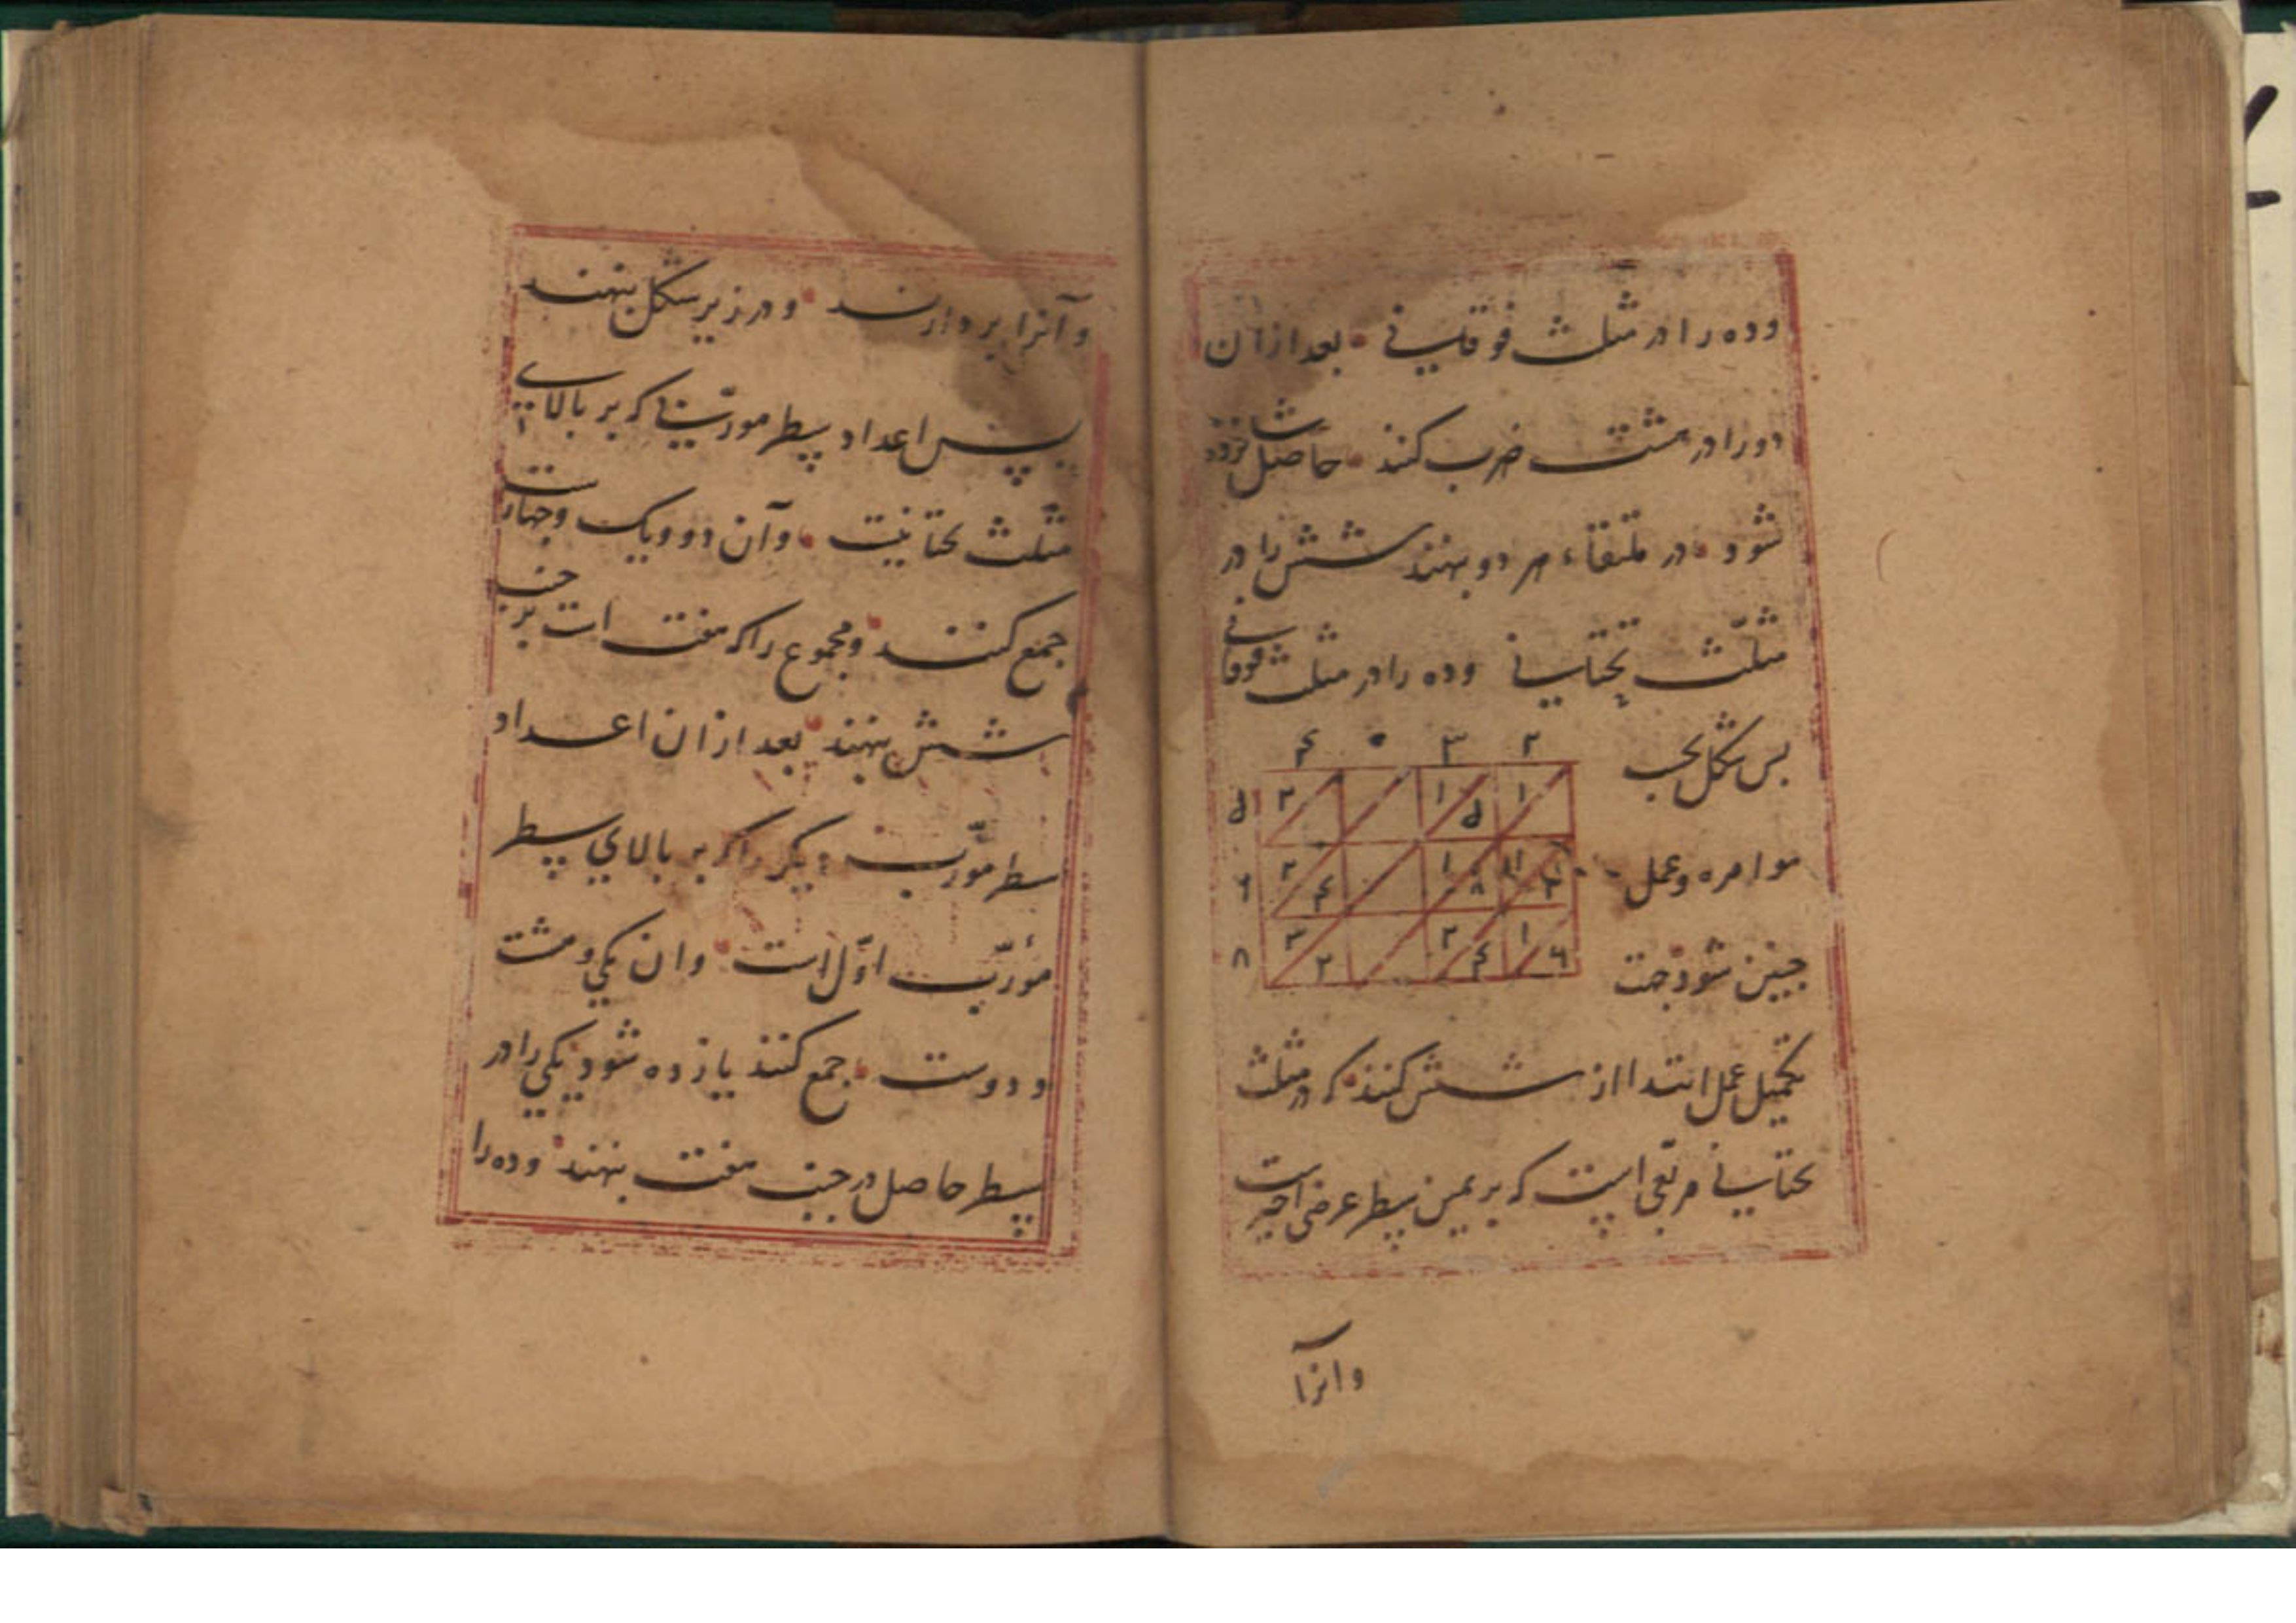 وده را در مثلث فوقانی بعد ازان
دو را در هشت ضرب کنند حاصل شانزده
شود در ملتقاء هر دو بنهند شش را در
مثلّث تحتانی وده را در مثلث فوقانی
بس شکل بحسب
۴ ۰ ۳ ۲
۵ ۲ ۱ ۵ ۱
موامره وعمل
۶ ۲ ۴ ۱ ۸ ۱ ۲
جنین شود جهت
۸ ۳ ۲ ۲ ۴ ۱ ۶
تکمیل عمل ابتدا از شش کنند که در مثلث
تحتانی مربّعی است که بر یمین سطر عرضی اخیرست
وانرا
وآنرا بردارند ودر زیر شکل بنهند
پس اعداد سطر مورّبی که بر بالای
مثلّث تحتانیت وآن دو ویک وچهارست
جمع کنند ومجموع را که هفت است بر جنب
شش بنهند بعد ازان اعداد
سطر مورّب دیکر را که بر بالای سطر
مورّب اوّل است وان یکی وهشت
ودوست جمع کنند یازده شود یکی را در
سطر حاصل در جنب هفت بنهند وده را